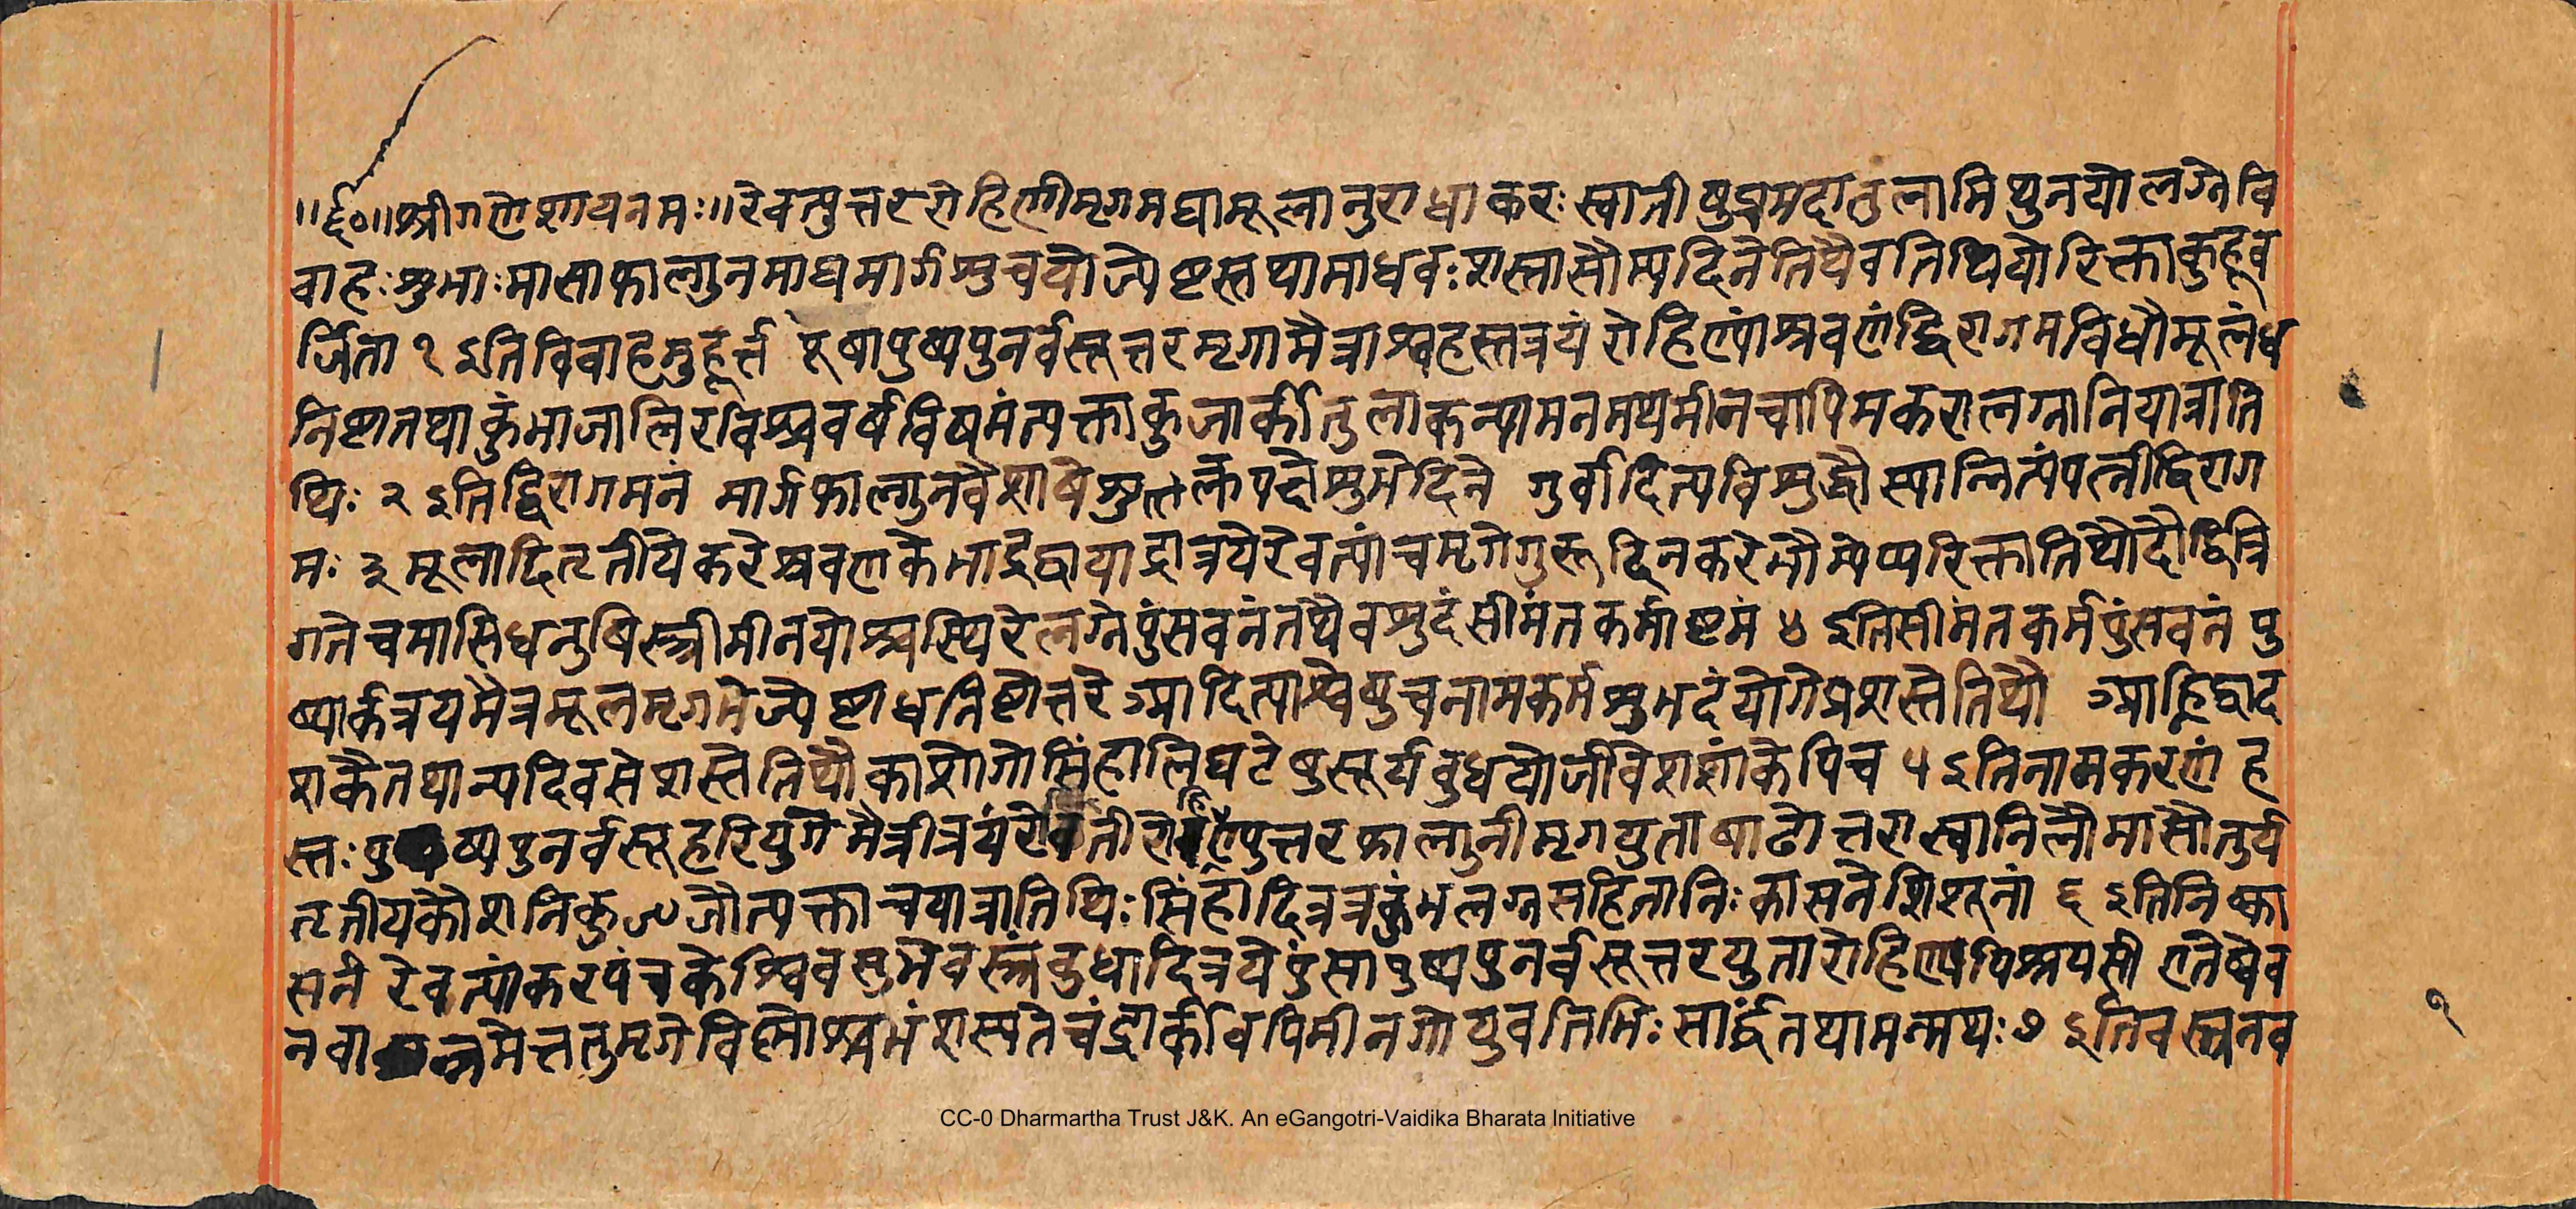 ॥ ६० ॥ श्रीगणेशायनमः ॥ रेवत्युत्तररोहिणीमृगमघामूलानुराधाकरः स्वातीषुप्रमदातुलामिथुनयोलग्नेवि
वाहः शुभाः मासाफाल्गुनमाघमार्गशुचयोज्येष्टस्तथामाधवः शस्तासौम्यदिनेतिथैवतिथियोरिक्ताकुहूव
र्जिता १ इतिविवाहमुहूर्त्त पूषापुष्यपुनर्वसूत्तरमृगामैत्राश्वहस्तत्रयं रोहिण्यांश्रवणंद्विरागमविधौमूलंध
निष्टातथा कुंभाजालिरविश्चवर्षविषमंत्यक्ताकुजार्कीतुलाकन्यामनमथमीनचापिमकरालग्नानियात्राति
थिः २ इतिद्विरागमनं मार्गफाल्गुनवैशाषेशुक्लपक्षेशुभेदिने गुर्वादित्यविशुद्धौस्यान्नित्यंपत्नीद्विराग
मः ३ मूलादित्रतीयेकरेश्रवणकेभाद्रद्वायार्द्रात्रयेरेवत्यांचमृगेगुरूदिनकरेभौमेप्यरिक्तातिथौदौद्वित्रि
गतेचमासिधनुषिस्त्रीमीनयोश्चस्थिरेलग्नेपुंसवनंतथैवशुदंसीमंतकर्माष्टमं ४ इतिसीमंतकर्मपुंसवनं पु
ष्यार्कत्रयमैत्रमूलमृगभेज्येष्टाधनिष्टोत्तरे आदित्याश्वेषुचनामकर्मशुभदंयोगेप्रशस्तेतिथौ आह्निद्वाद
शकैतथान्यदिवसेशस्तेतिथौकाशेगोसिंहालिघटेषुसूर्यबुधयोर्जीवेशशांकेपिच ५ इतिनामकरणं ह
स्तः पुष्यपुनर्वसूहरियुगंमैत्रीत्रयंरेवतीरोहिण्युत्तरफालगुनीमृगयुताषाढोत्तरास्वानिलौमासौतुर्य
त्रतीयकौशनिकुजौत्यक्ताचयात्रातिथिः सिंहादित्रत्रकुंभलग्नसहितानिःकासनेशिशूनां ६ इतिनिष्का
सनं रेवत्यांकरपंचकेश्विवसुभेवस्त्रंबुधादित्रयेपुंसापुष्यपुनर्वसूत्तरयुतारोहिण्यपिश्रयसी एतेष्वेव
नवान्नमैत्ततुमृगेविष्णोश्चभंशस्यतेचंद्रार्कीवपिमीनगोयुवतिभिः सार्द्धंतथामन्मथः ७ इतिवस्त्रनव
१
CC-0 Dharmartha Trust J&K. An eGangotri-Vaidika Bharata Initiative